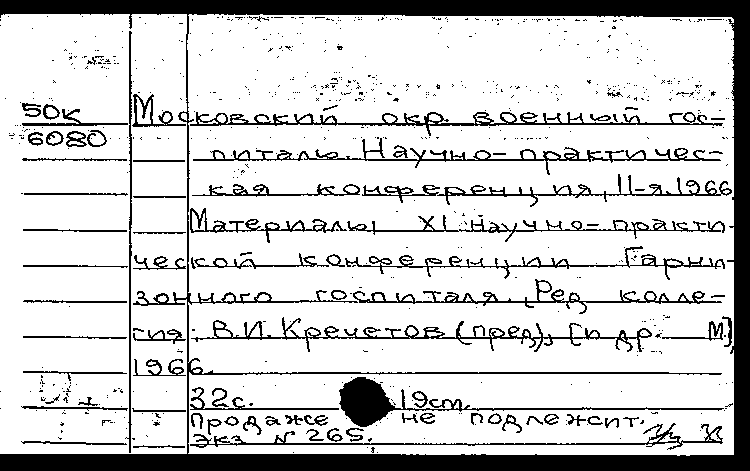 50к Московский окр. военный гос=
6080 питаль. Научно-практичес-
кая конференция, 11-я. 1966
Материалы XI научно-практи-
ческой конференции Гарни-
зонного госпиталя. [Ред. колле-
гия: В.И. Кречетов (пред), [и др. М],
1966.
32с. 19cm.
Продаже не подлежит.
Экз N 265.